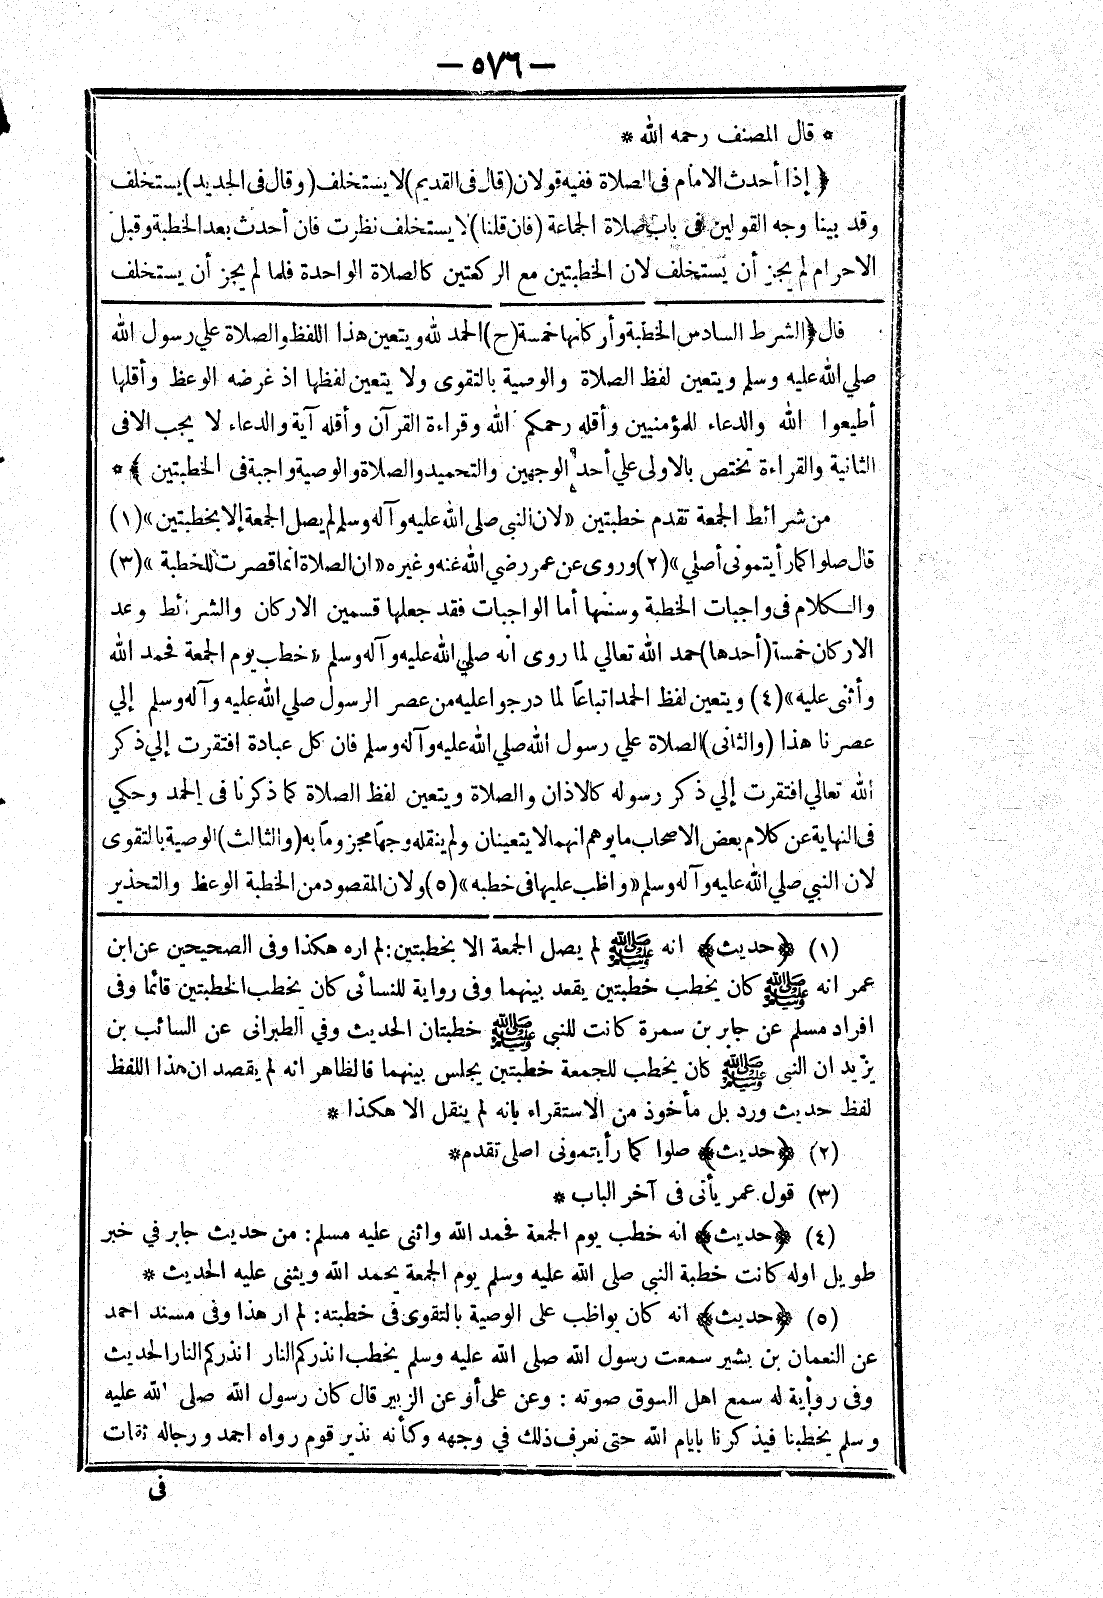 — ٥٧٦ —
* قال المصنف رحمه الله *
﴿ إذا أحدث الامام فى الصلاة ففيه قولان (قال فى القديم) لا يستخلف (وقال فى الجديد) يستخلف
وقد بينا وجه القولين فى باب صلاة الجماعة (فان قلنا) لا يستخلف نظرت فان أحدث بعد الخطبة وقبل
الاحرام لم يجز أن يستخلف لان الخطبتين مع الركعتين كالصلاة الواحدة فلما لم يجز أن يستخلف
قال ﴿ الشرط السادس الخطبة وأركانها خمسة (ح) الحمد لله ويتعين هذا اللفظ والصلاة علي رسول الله
صلي الله عليه وسلم ويتعين لفظ الصلاة والوصية بالتقوى ولا يتعين لفظها اذ غرضه الوعظ وأقلها
أطيعوا الله والدعاء للمؤمنين وأقله رحمكم الله وقراءة القرآن وأقله آية والدعاء لا يجب الا فى
الثانية والقراءة تختص بالاولى علي أحد الوجهين والتحميد والصلاة والوصية واجبة فى الخطبتين ﴾ *
من شرائط الجمعة تقدم خطبتين «لان النبى صلى الله عليه وآله وسلم لم يصل الجمعة إلا بخطبتين» (١)
قال صلوا كما رأيتمونى أصلي» (٢) وروى عن عمر رضي الله عنه وغيره «ان الصلاة انما قصرت للخطبة» (٣)
والكلام فى واجبات الخطبة وسننها أما الواجبات فقد جعلها قسمين الاركان والشرائط وعد
الاركان خمسة (أحدها) حمد الله تعالي لما روى انه صلي الله عليه وآله وسلم «خطب يوم الجمعة فحمد الله
وأثنى عليه» (٤) ويتعين لفظ الحمد اتباعًا لما درجوا عليه من عصر الرسول صلي الله عليه وآله وسلم إلي
عصرنا هذا (والثانى) الصلاة علي رسول الله صلي الله عليه وآله وسلم فان كل عبادة افتقرت إلي ذكر
الله تعالي افتقرت إلي ذكر رسوله كالاذان والصلاة ويتعين لفظ الصلاة كما ذكرنا فى الحمد وحكي
فى النهاية عن كلام بعض الاصحاب ما يوهم انهما لا يتعينان ولم ينقله وجهًا مجزومًا به (والثالث) الوصية بالتقوى
لان النبي صلي الله عليه وآله وسلم «واظب عليها فى خطبه» (٥) ولان المقصود من الخطبة الوعظ والتحذير
(١) ﴿حديث﴾ انه ﷺ لم يصل الجمعة الا بخطبتين: لم اره هكذا وفى الصحيحين عن ابن
عمر انه ﷺ كان يخطب خطبتين يقعد بينهما وفى رواية للنسائى كان يخطب الخطبتين قائما وفى
افراد مسلم عن جابر بن سمرة كانت للنبي ﷺ خطبتان الحديث وفي الطبرانى عن السائب بن
يزيد ان النبى ﷺ كان يخطب للجمعة خطبتين يجلس بينهما فالظاهر انه لم يقصد ان هذا اللفظ
لفظ حديث ورد بل مأخوذ من الاستقراء بانه لم ينقل الا هكذا *
(٢) ﴿حديث﴾ صلوا كما رأيتمونى اصلى تقدم *
(٣) قول عمر يأتى فى آخر الباب *
(٤) ﴿حديث﴾ انه خطب يوم الجمعة فحمد الله واثنى عليه مسلم: من حديث جابر في خبر
طويل اوله كانت خطبة النبى صلى الله عليه وسلم يوم الجمعة يحمد الله ويثنى عليه الحديث *
(٥) ﴿حديث﴾ انه كان يواظب على الوصية بالتقوى فى خطبته: لم ار هذا وفى مسند احمد
عن النعمان بن بشير سمعت رسول الله صلى الله عليه وسلم يخطب انذركم النار انذركم النار الحديث
وفى رواية له سمع اهل السوق صوته : وعن على أو عن الزبير قال كان رسول الله صلى الله عليه
وسلم يخطبنا فيذكرنا بايام الله حتى نعرف ذلك في وجهه وكأنه نذير قوم رواه احمد ورجاله ثقات
فى